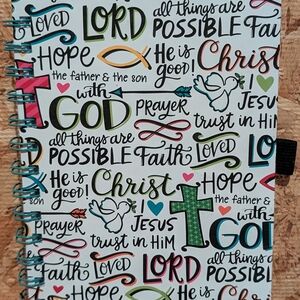 Loved LORD all things are POSSIBLE Faith
Hope He is good! Christ
the father & the son
with GOD prayer I JESUS
trust in Him
all things are POSSIBLE Faith Loved LO
He is good! Christ Hope
the father &
prayer I JESUS with GOD
trust in Him
Faith Loved LORD all things are POSSIBL
Hope He is Christ